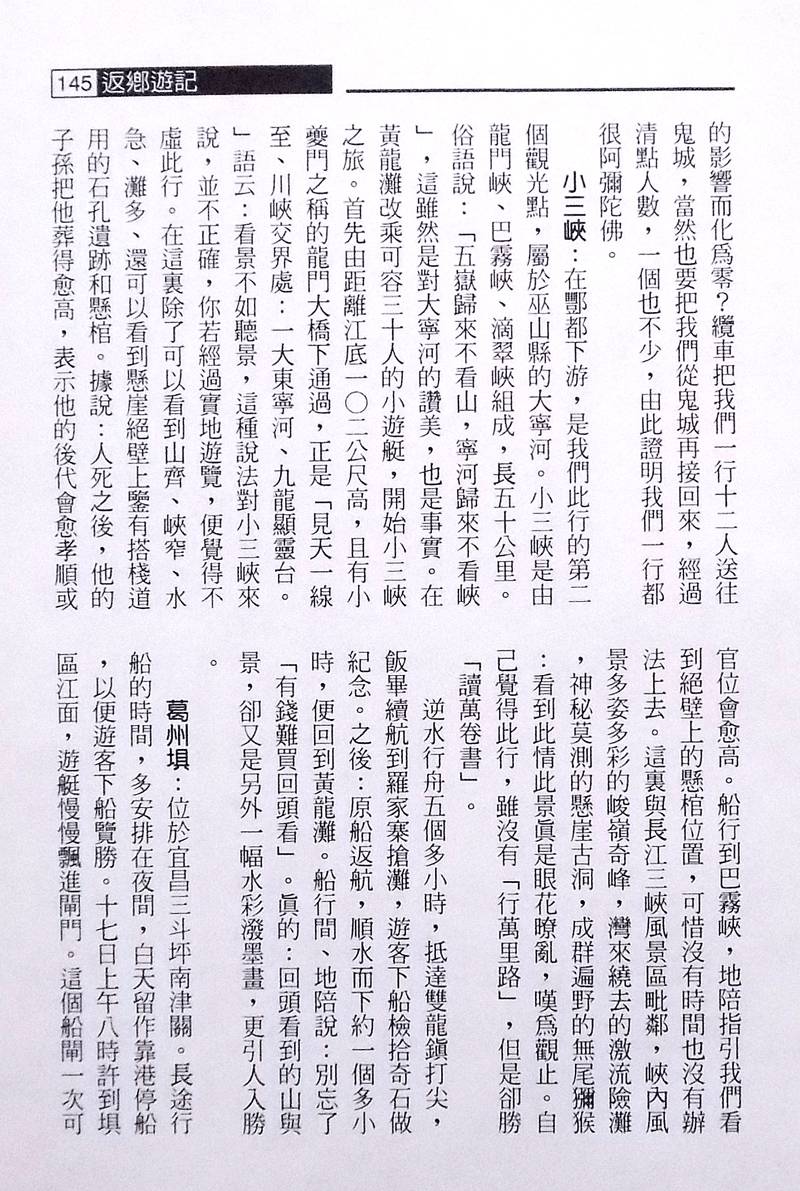 145 返鄉遊記
的影響而化爲零？纜車把我們一行十二人送往
鬼城，當然也要把我們從鬼城再接回來，經過
清點人數，一個也不少，由此證明我們一行都
很阿彌陀佛。
小三峽：在酆都下游，是我們此行的第二
個觀光點，屬於巫山縣的大寧河。小三峽是由
龍門峽、巴霧峽、滴翠峽組成，長五十公里。
俗語說：「五嶽歸來不看山，寧河歸來不看峽
」，這雖然是對大寧河的讚美，也是事實。在
黃龍灘改乘可容三十人的小遊艇，開始小三峽
之旅。首先由距離江底一〇二公尺高，且有小
夔門之稱的龍門大橋下通過，正是「見天一線
至、川峽交界處：一大東寧河、九龍顯靈台。
」語云：看景不如聽景，這種說法對小三峽來
說，並不正確，你若經過實地遊覽，便覺得不
虛此行。在這裏除了可以看到山齊、峽窄、水
急、灘多、還可以看到懸崖絕壁上鑿有搭棧道
用的石孔遺跡和懸棺。據說：人死之後，他的
子孫把他葬得愈高，表示他的後代會愈孝順或
官位會愈高。船行到巴霧峽，地陪指引我們看
到絕壁上的懸棺位置，可惜沒有時間也沒有辦
法上去。這裏與長江三峽風景區毗鄰，峽內風
景多姿多彩的峻嶺奇峰，灣來繞去的激流險灘
，神秘莫測的懸崖古洞，成群遍野的無尾獼猴
：看到此情此景眞是眼花暸亂，嘆爲觀止。自
己覺得此行，雖沒有「行萬里路」，但是卻勝
「讀萬卷書」。
逆水行舟五個多小時，抵達雙龍鎭打尖，
飯畢續航到羅家寨搶灘，遊客下船檢拾奇石做
紀念。之後：原船返航，順水而下約一個多小
時，便回到黃龍灘。船行間、地陪說：別忘了
「有錢難買回頭看」。眞的：回頭看到的山與
景，卻又是另外一幅水彩潑墨畫，更引人入勝
。
葛州埧：位於宜昌三斗坪南津關。長途行
船的時間，多安排在夜間，白天留作靠港停船
，以便遊客下船覽勝。十七日上午八時許到埧
區江面，遊艇慢慢飄進閘門。這個船閘一次可